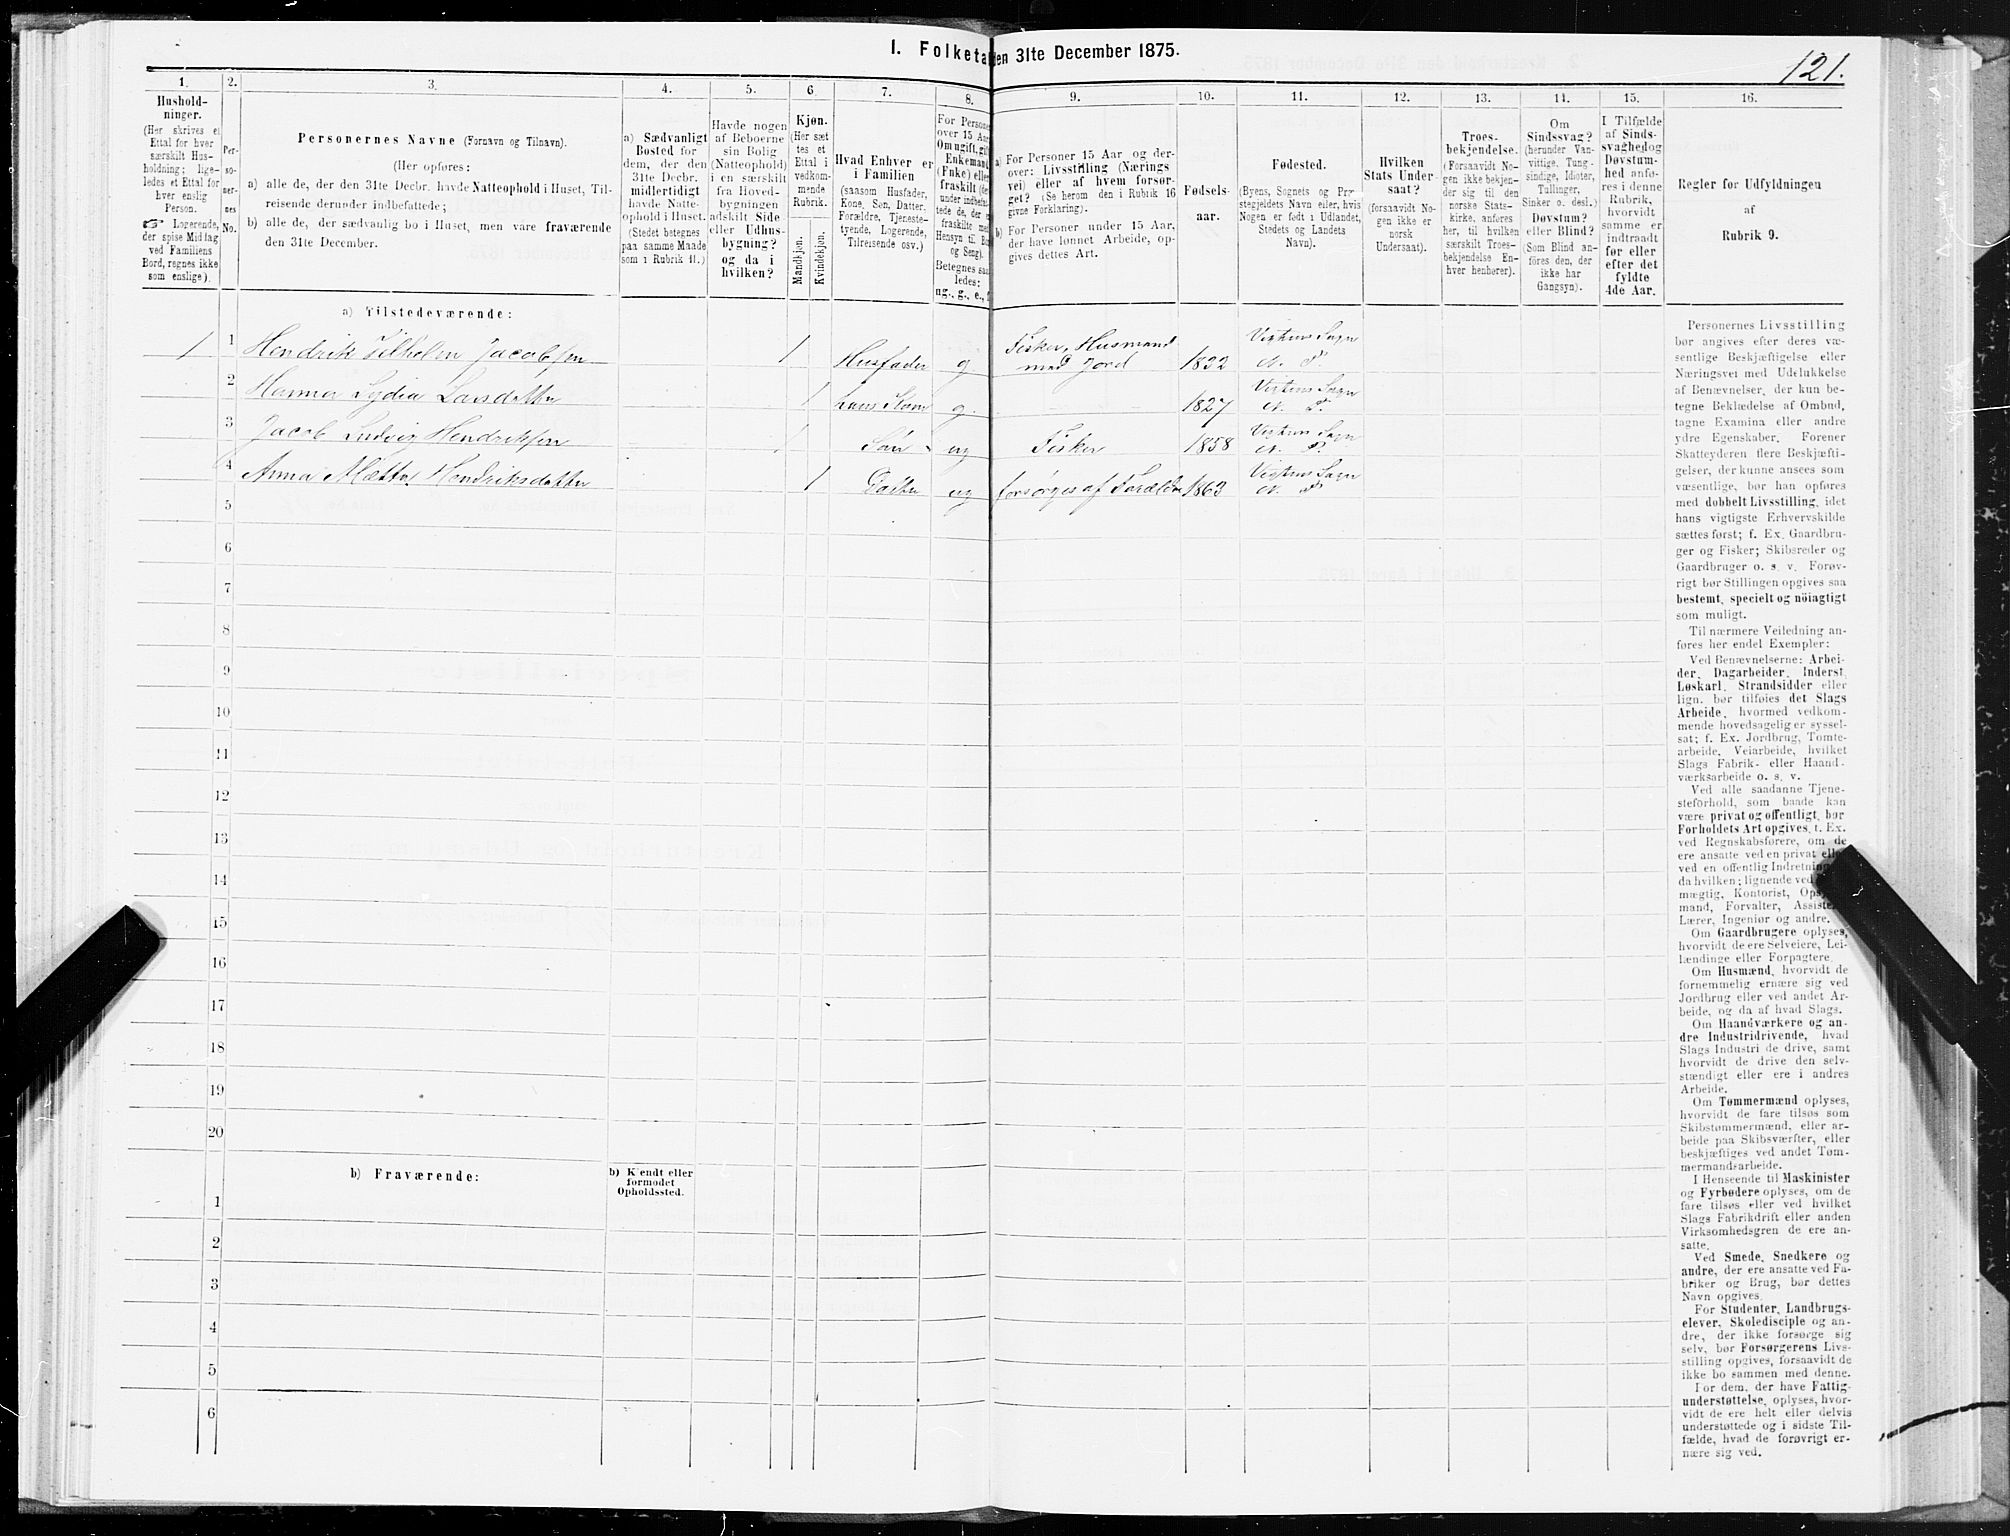 I. Folketa en 31te December 1875.
121.
1.
Hushold-
ninger.
(Her skrives et
Ettal for hver
særskilt Hus-
holdning; lige-
ledes et Ettal for
hver enslig
Person.
☞ Logerende,
der spise Middag
ved Familiens
Bord, regnes ikke
som enslige).
2.
Per-
so-
ner-
nes
No.
3.
Personernes Navne (Fornavn og Tilnavn).
(Her opføres:
a) alle de, der den 31te Decbr. havde Natteophold i Huset, Til-
reisende derunder indbefattede;
b) alle de, der sædvanlig bo i Huset, men vare fraværende
den 31te December.
4.
a) Sædvanligt
Bosted for
dem, der den
31te Decbr.
midlertidigt
havde Natte-
ophold i Huset.
(Stedet betegnes
paa samme Maade
som i Rubrik 11.)
5.
Havde nogen
af Beboerne
sin Bolig
(Natteophold)
i en særskilt
fra Hoved-
bygningen
adskilt Side
eller Udhus-
bygning?
og da i
hvilken?
6
Kjøn.
(Her sæt-
tes et
Ettal i
vedkom-
mende
Rubrik.
Mandkjøn.
Kvindekjøn.
7.
Hvad Enhver er
i Familien
(saasom Husfader,
Kone, Søn, Datter,
Forældre, Tjeneste-
tyende, Logerende,
Tilreisende osv.)
8.
For Persone
over 15 Aar
Om ugift, gift
Enkemand
(Enke) eller
fraskilt (de
under indbefa
tede de, der
fraskilte med
Hensyn til Bo
og Seng).
Betegnes saa
ledes:
ug., g., e.,
9.
a) For Personer 15 Aar og der-
over: Livsstilling (Nærings
vei) eller af hvem forsør-
get? (Se herom den i Rubrik 16
givne Forklaring).
b) For Personer under 15 Aar,
der have lønnet Arbeide, op-
gives dettes Art.
10.
Fødsels-
aar.
11.
Fødested.
(Byens, Sognets og Præ
stegjeldets Navn eller, hvis
Nogen er født i Udlandet,
Stedets og Landets
Navn).
12.
Hvilken
Stats Under-
saat?
(forsaavidt No-
gen ikke er
norsk
Undersaat).
13.
Troes-
bekjendelse.
(Forsaavidt No-
gen ikke bekjen-
der sig til den
norske Stats-
kirke, anføres
her, til hvilken
særskilt Troes-
bekjendelse En-
hver henhører).
14.
Om
Sindssvag?
(herunder Van-
vittige, Tung-
sindige, Idioter,
Tullinger,
Sinker o. desl.)
Døvstum?
eller Blind?
(Som Blind an-
føres den, der
ikke har
Gangsyn).
15.
I Tilfælde
af Sinds-
svaghed og
Døvstum-
hed anfø-
res i denne
Rubrik,
hvorvidt
samme er
indtraadt
før eller
efter det
fyldte
4de Aar.
16.
Regler for Udfyldningen
af
Rubrik 9.
a) Tilstedeværende:
1 1 Hendrik Tilhelsen Jacobsen 1 Husfader g Fisker, Husmand med Jord 1832
2 Hanna Lydia Larsdatter 1 hans Kone g. 1827
3 Jacob Ludvig Hendriksen 1 Søn ug Fisker 1858
4 Anna Mætte Hendriksdatter 1 Datter ug forsørges af Forældre 1863
5
6
7
8
9
10
11
12
13
14
15
16
17
18
19
20
b) Fraværende:
b) Kjendt eller
formodet
Opholdssted.
1
2
3
4
5
6
Personernes Livsstilling
bør angives efter deres væ-
sentlige Beskjæftigelse eller
Næringsvei med Udelukkelse
af Benævnelser, der kun be-
tegne Beklædelse af Ombud,
tagne Examina eller andre
ydre Egenskaber. Forener
Skatteyderen flere Beskjæfti-
gelser, der kunne ansees som
væsentlige, bør han opføres
med dobbelt Livsstilling, idet
hans vigtigste Erhvervskilde
sættes først; f. Ex. Gaardbru-
ger og Fisker; Skibsreder og
Gaardbruger o. s. v. Forøv-
rigt bør Stillingen opgives saa
bestemt, specielt og nöiagtigt
som muligt.
Til nærmere Veiledning an-
føres her endel Exempler:
Ved Benævnelserne: Arbei-
der, Dagarbeider, Inderst,
Løskarl, Strandsidder eller
lign. bør tilføies det Slags
Arbeide, hvormed vedkom-
mende hovedsagelig er syssel-
sat; f. Ex. Jordbrug, Tomte-
arbeide, Veiarbeide, hvilket
Slags Fabrik- eller Haand-
værksarbeide o. s. v.
Ved alle saadanne Tjene-
steforhold, som baade kan
være privat og offentligt, bør
Forholdets Art opgives, t. Ex.
ved Regnskabsførere, om de
ere ansatte ved en privat eller
ved en offentlig Indretning
da hvilken; lignende ved
mægtig, Kontorist, Ops
mand, Forvalter, Assiste
Lærer, Ingeniør og andre.
Om Gaardbrugere oplyses,
hvorvidt de ere Selveiere, Lei-
lændinge eller Forpagtere.
Om Husmænd, hvorvidt de
fornemmelig ernære sig ved
Jordbrug eller ved andet Ar-
beide, og da af hvad Slags.
Om Haandværkere og an-
dre Industridrivende, hvad
Slags Industri de drive, samt
hvorvidt de drive den selv-
stændigt eller ere i andres
Arbeide.
Om Tømmermænd oplyses,
hvorvidt de fare tilsøs som
Skibstømmermænd, eller ar-
beide paa Skibsværfter, eller
beskjæftiges ved andet Tøm-
mermandsarbeide.
I Henseende til Maskinister
og Fyrbødere oplyses, om de
fare tilsøs eller ved hvilket
Slags Fabrikdrift eller anden
Virksomhedsgren de ere an-
satte.
Ved Smede, Snedkere og
andre, der ere ansatte ved Fa-
briker og Brug, bør dettes
Navn opgives.
For Studenter, Landbrugs-
elever, Skoledisciple og an-
dre, der ikke forsørge sig
selv, bør Forsørgerens Livs-
stilling opgives, forsaavidt de
ikke bo sammen med denne.
For dem, der have Fattig-
understøttelse, oplyses, hvor-
vidt de ere helt eller delvis
understøttede og i sidste Til-
fælde, hvad de forøvrigt er-
nære sig ved.